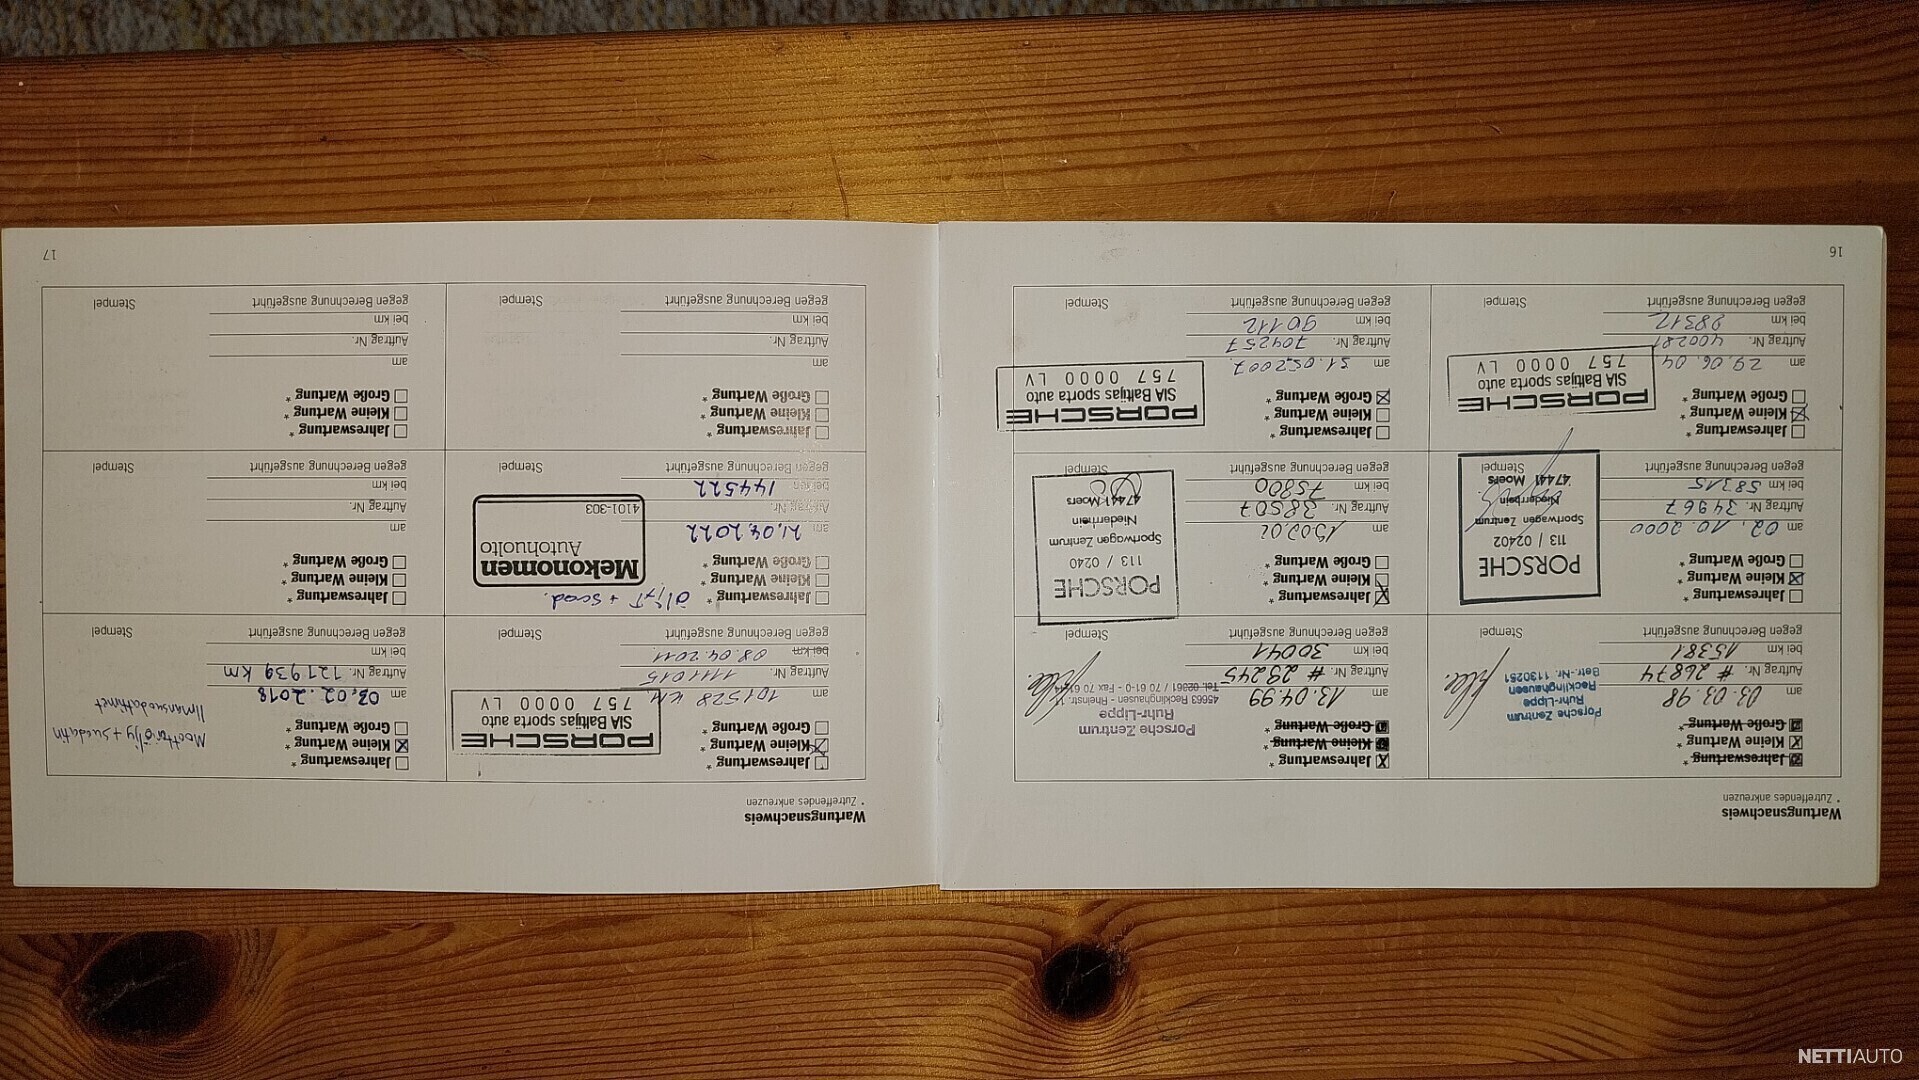 Wartungsnachweis
* Zutreffendes ankreuzen
Jahreswartung *
Kleine Wartung *
Große Wartung *
am 03.03.98
Auftrag Nr. # 26874
bei km 15381
gegen Berechnung ausgeführt
Porsche Zentrum
Ruhr-Lippe
Recklinghausen
Betr.-Nr. 1130251
Stempel
Jahreswartung *
Kleine Wartung *
Große Wartung *
am 13.04.99
Auftrag Nr. # 29245
bei km 30041
gegen Berechnung ausgeführt
Porsche Zentrum
Ruhr-Lippe
45663 Recklinghausen - Rheinstr. 11
Tel. 02361 / 70 61-0 - Fax 70 61
Stempel
Jahreswartung *
Kleine Wartung *
Große Wartung *
am 02.10.2000
Auftrag Nr. 34967
bei km 58315
gegen Berechnung ausgeführt
PORSCHE
113 / 02402
Sportwagen Zentrum
Niederrhein
47441 Moers
Stempel
Jahreswartung *
Kleine Wartung *
Große Wartung *
am 15.02.02
Auftrag Nr. 38507
bei km 75800
gegen Berechnung ausgeführt
PORSCHE
113 / 0240
Sportwagen Zentrum
Niederrhein
47441 Moers
Stempel
Jahreswartung *
Kleine Wartung *
Große Wartung *
am 29.06.04
Auftrag Nr. 400281
bei km 88312
gegen Berechnung ausgeführt
PORSCHE
SIA Baltijas sporta auto
757 0000 LV
Stempel
Jahreswartung *
Kleine Wartung *
Große Wartung *
am 31.05.2007
Auftrag Nr. 704257
bei km 90112
gegen Berechnung ausgeführt
PORSCHE
SIA Baltijas sporta auto
757 0000 LV
Stempel
16
Wartungsnachweis
* Zutreffendes ankreuzen
Jahreswartung *
Kleine Wartung *
Große Wartung *
am 101528 KM
Auftrag Nr. 1111015
bei km 08.04.2011.
gegen Berechnung ausgeführt
PORSCHE
SIA Baltijas sporta auto
757 0000 LV
Stempel
Jahreswartung *
Kleine Wartung *
Große Wartung *
am 02.02.2018
Auftrag Nr. 121939 km
bei km
gegen Berechnung ausgeführt
Moottoriöljy + suodatin
Ilmansuodattimet
Stempel
Jahreswartung *
Kleine Wartung *
Große Wartung *
am 21.04.2022
Auftrag Nr.
bei km 144522
gegen Berechnung ausgeführt
Öljyt + suod.
Mekonomen
Autohuolto
4101-303
Stempel
Jahreswartung *
Kleine Wartung *
Große Wartung *
am
Auftrag Nr.
bei km
gegen Berechnung ausgeführt
Stempel
Jahreswartung *
Kleine Wartung *
Große Wartung *
am
Auftrag Nr.
bei km
gegen Berechnung ausgeführt
Stempel
Jahreswartung *
Kleine Wartung *
Große Wartung *
am
Auftrag Nr.
bei km
gegen Berechnung ausgeführt
Stempel
17
NETTIAUTO